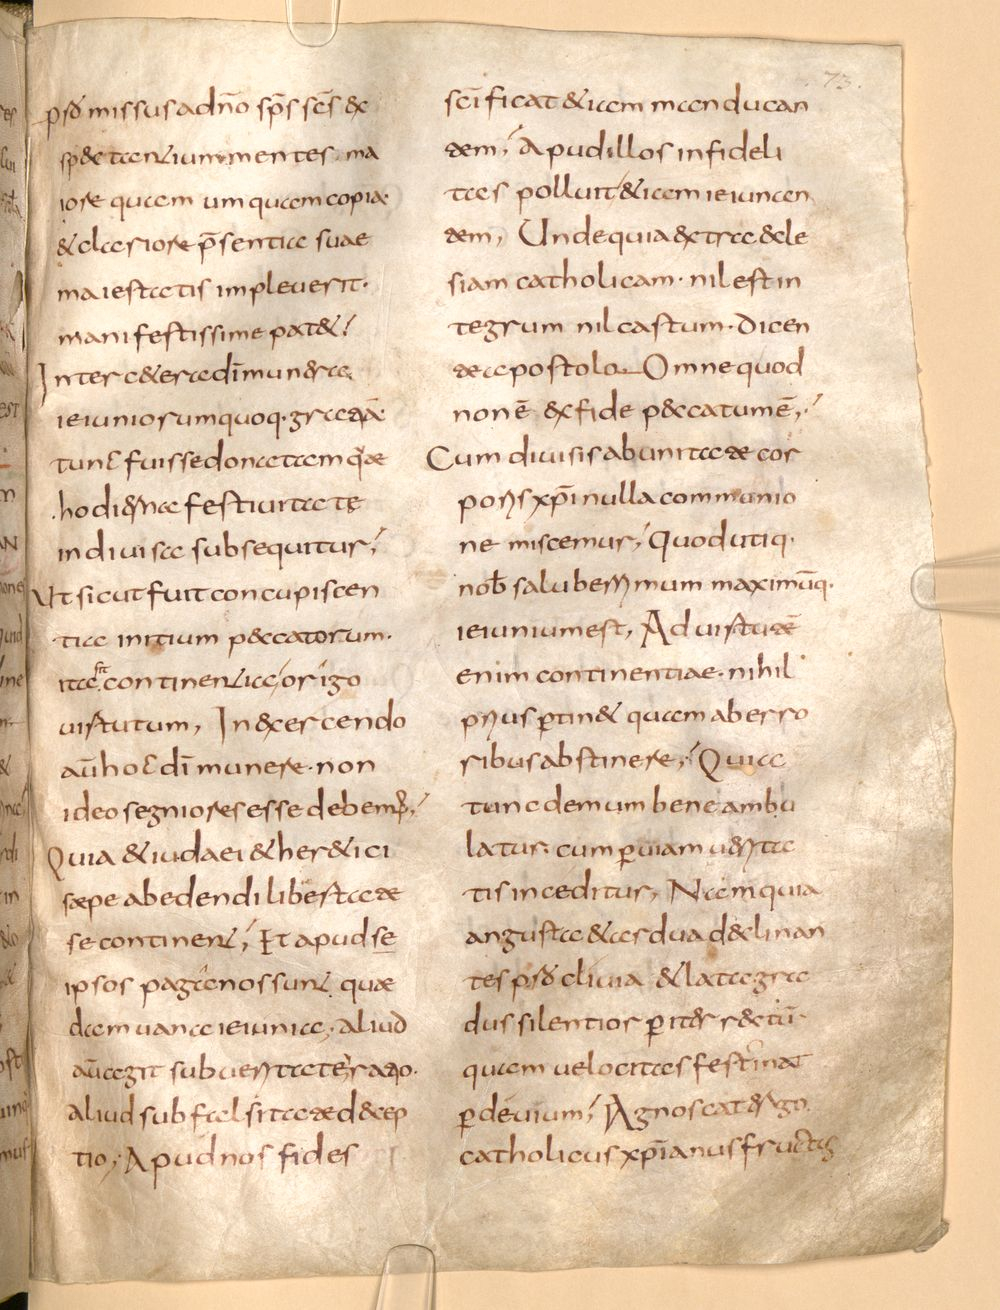 73.
psō missus adn̄o sp̄s sc̄s &c
sp&tantium mentes. ma
iore quam umquam copia.
& clariore p̄sentia suae
maiestatis impleuerit.
manifestissime pat&;
Inter c&era dī munera
ieiuniorum quoq. gratiā
tunc fuisse donatam quae
hodierna festiuitate
indiuisa subsequitur;
Ut sicut fuit concupiscen
tia initium peccatorum.
ita sit continentia origo
uirtutum, In exercendo
aū hoc dī munere. non
ideo segniores esse debem;
Quia & iudaei & her&ici
saepe ab edendi libertate
se continent; Et apud se
ipsos paganos sunt quae
dam uana ieiunia, aliud
aū agit sub ueritate ratio.
aliud sub falsitate decep
tio; Apud nos fides
sc̄ificat &iam manducan
tem; Apud illos infideli
tas polluit &iam ieiunan
tem, Unde quia extra eccle
siam catholicam. nil est in
tegrum nil castum. dicen
te apostolo. Omne quod
non ē ex fide peccatum ē;
Cum diuisis ab unitate cor
poris xp̄i nulla communio
ne miscemur; Quod utiq.
nob̄ saluberrimum maximūq.
ieiunium est, Ad uirtutē
enim continentiae. nihil
prius ꝑtin& quam ab erro
ribus abstinere; Quia
tunc demum bene ambu
latur. cum ꝑ uiam uerita
tis inceditur, Nam quia
angusta & ardua declinan
tes psō cliuia & lata. gra
dus silentior ꝑ iter rectū.
quam uelocitas festinat
ꝑ deuium; Agnoscat ergo
catholicus xp̄ianus fructus